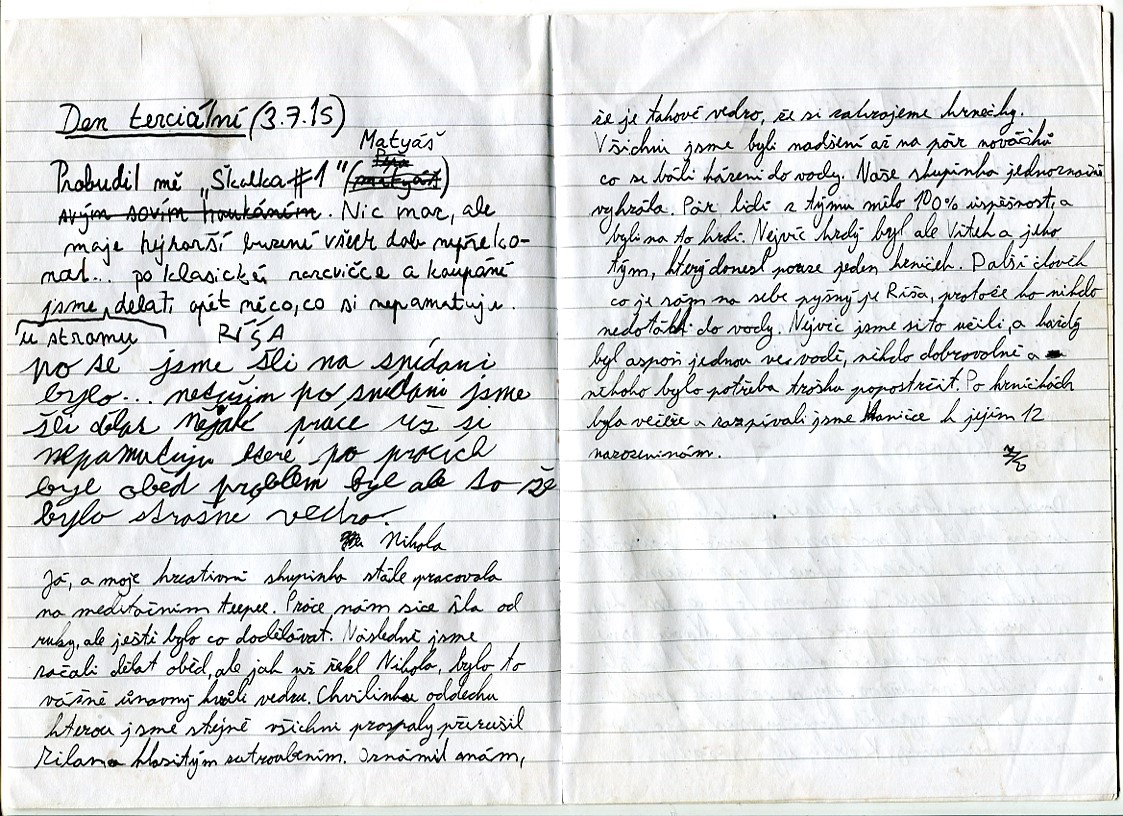 Den terciální (3.7.15)
Matyáš
Pepa
Probudil mě „Školka #1" (matyáš)
svým sovím houkáním. Nic mar, ale
maje nejhorší buzení všech dob nepřeko-
nal... po klasické rozcvičce a koupání
jsme dělat, opět něco, co si nepamatuje.
u stromu RÍŠA
po sé jsme šli na snídani
bylo... nevim po snidani jsme
šli dělat nějaké prace už si
nepamatuju které po pracích
byl oběd problém byl ale to že
bylo strašne vedro.
Nikola
Já, a moje kreativní skupinka stále pracovala
na meditačním teepee. Práce nám sice šla od
ruky, ale ještě bylo co dodělávat. Následně jsme
začali dělat oběd, ale jak už řekl Nikola, bylo to
vážně únavný kvůli vedru. Chvilinku oddechu
kterou jsme stejně všichni prospaly přerušil
Milan hlasitým zatroubením. Oznámil nám,
že je takové vedro, že si zahrajeme hrnečky.
Všichni jsme byli nadšení až na pár nováčků
co se báli házení do vody. Naše skupinka jednoznačně
vyhrála. Pár lidí z týmu mělo 100% úspěšnost, a
byli na to hrdí. Nejvíc hrdý byl ale Vítek a jeho
tým, který donesl pouze jeden hrníček. Další člověk
co je sám na sebe pyšný je Ríša, protože ho nikdo
nedotáhl do vody. Nejvíc jsme si to užili, a každý
byl aspoň jednou ve vodě, někdo dobrovolně a
někoho bylo potřeba trošku popostrčit. Po hrníčkách
byla večeře a zazpívali jsme Haničce k jejím 12
narozeninám.